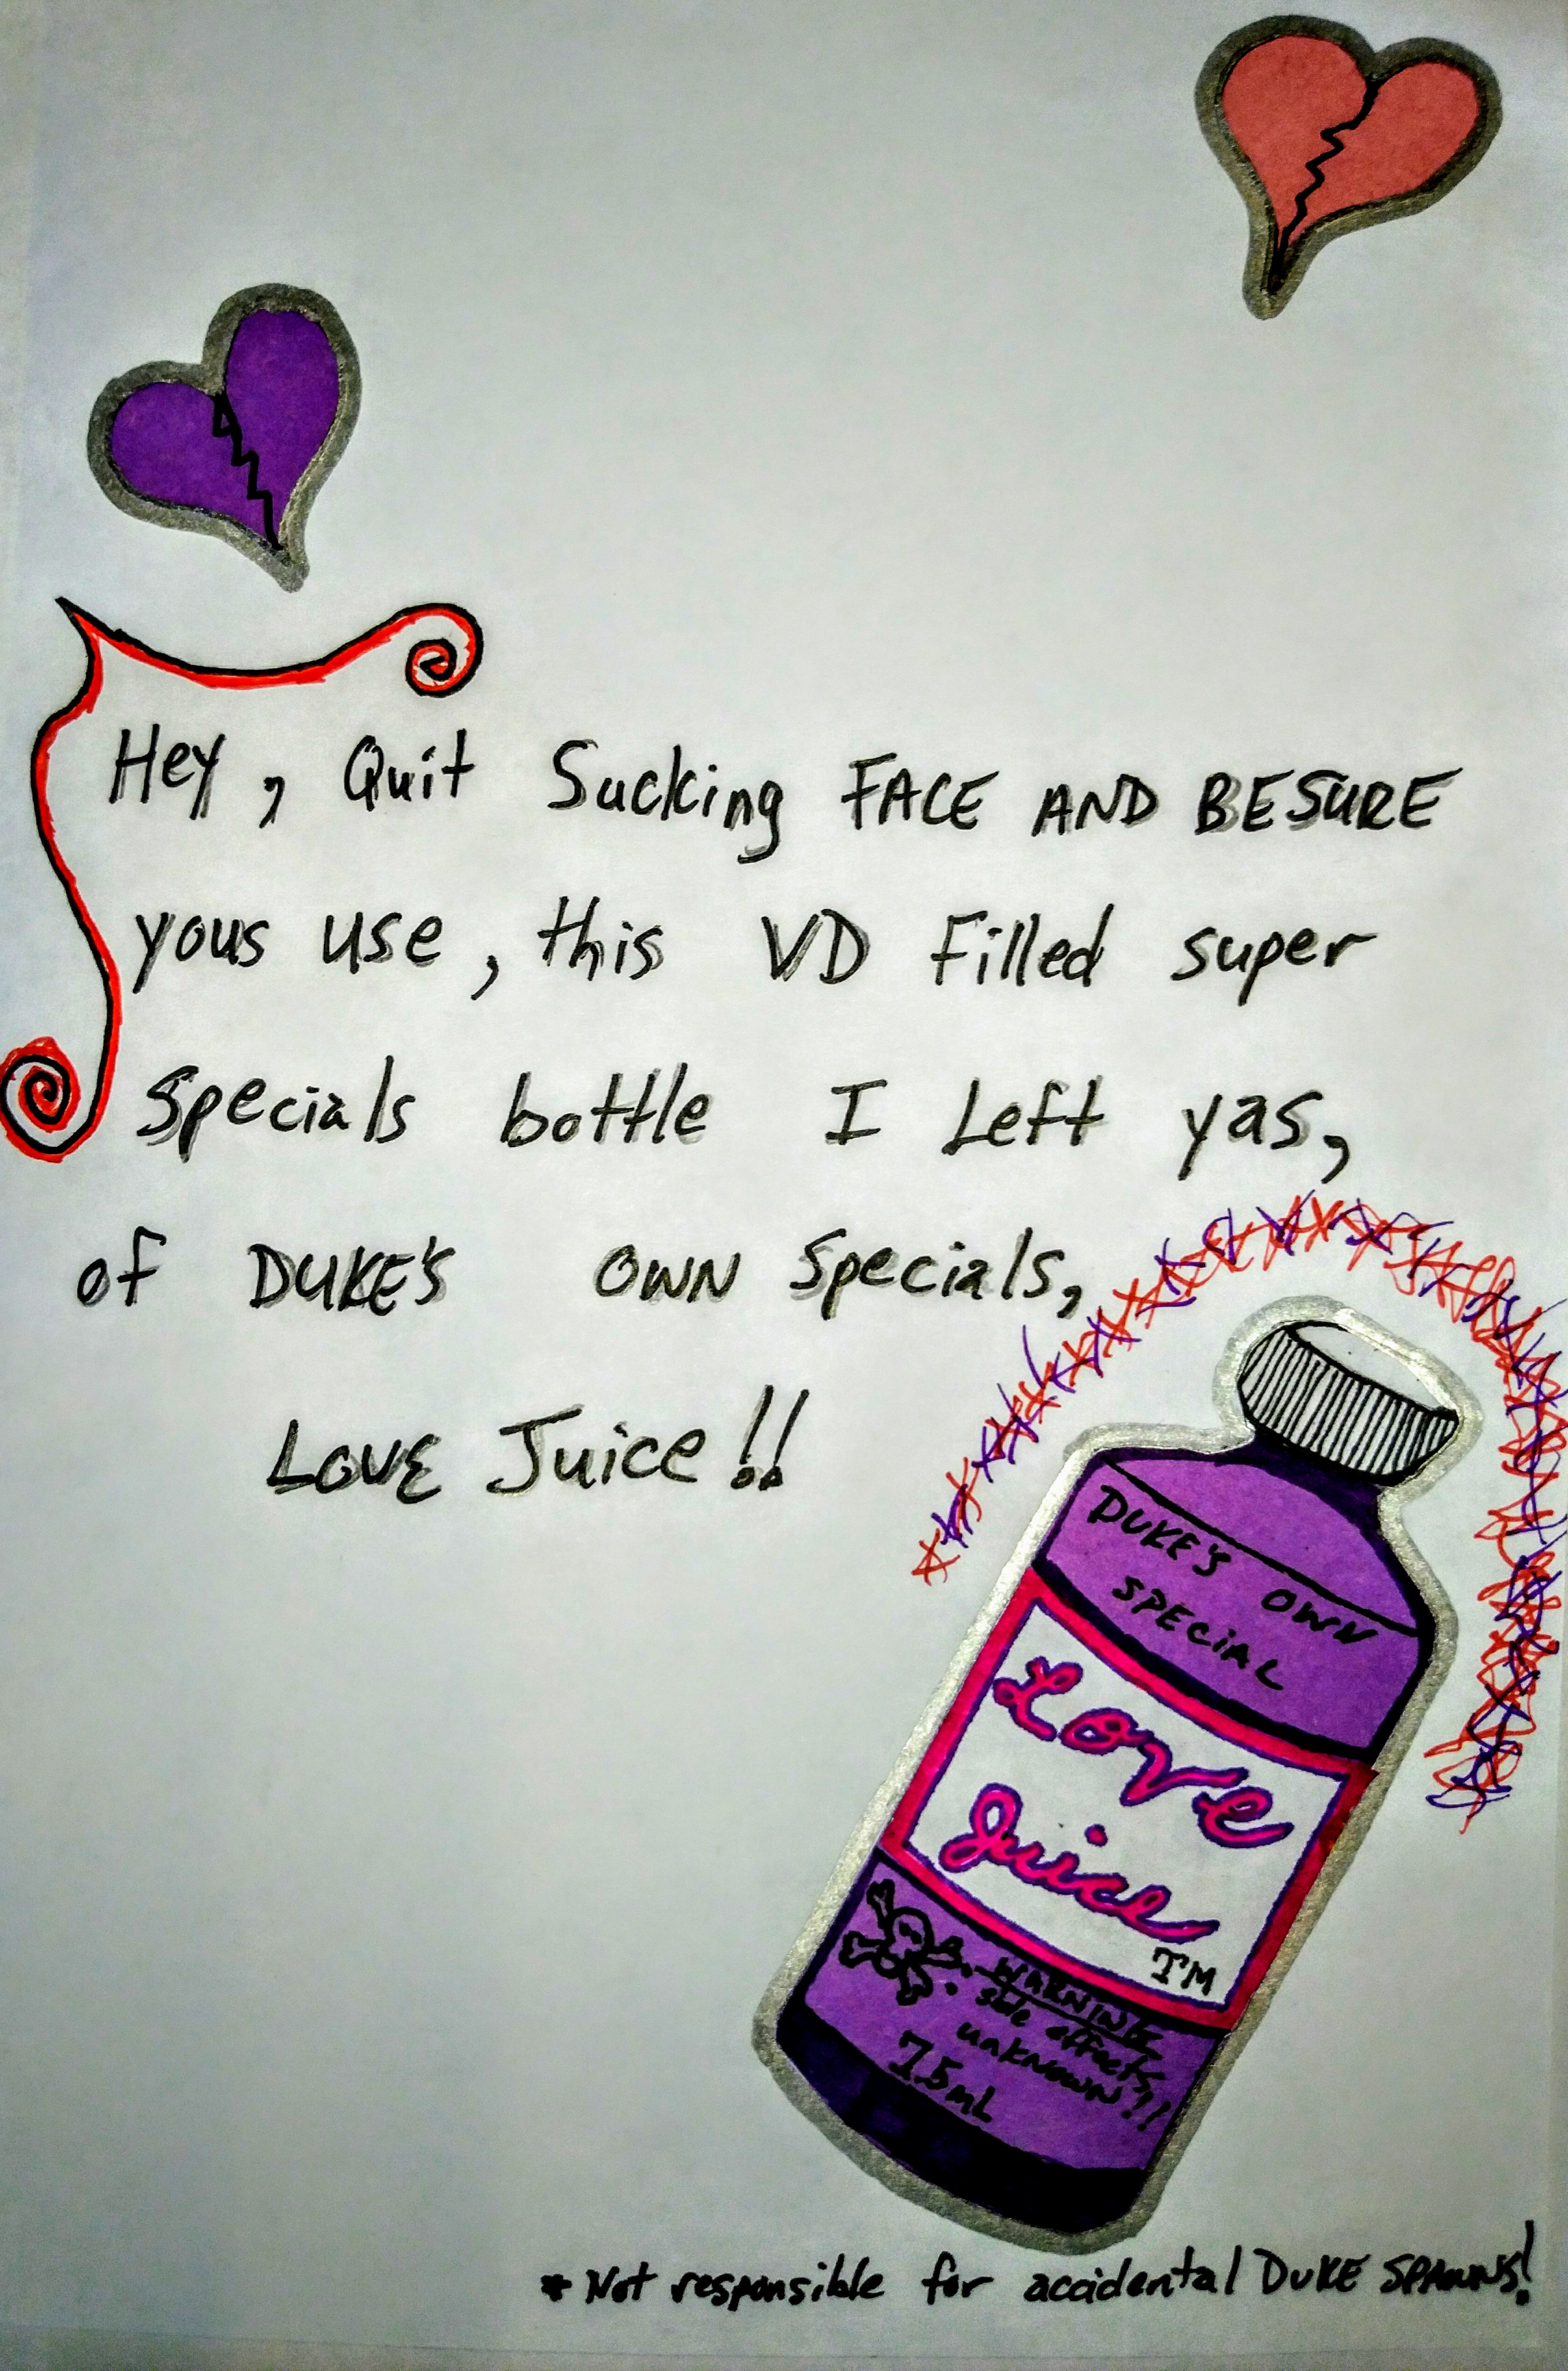 Hey, Quit Sucking FACE AND BESURE
yous use, this VD Filled super
Specials bottle I Left yas,
of DUKE'S OWN Specials,
LOVE Juice!!
DUKE'S OWN
SPECiAL
Love
Juice
TM
WARNING
side effects
unknown!!
75mL
* Not responsible for accidental DUKE SPAWNS!